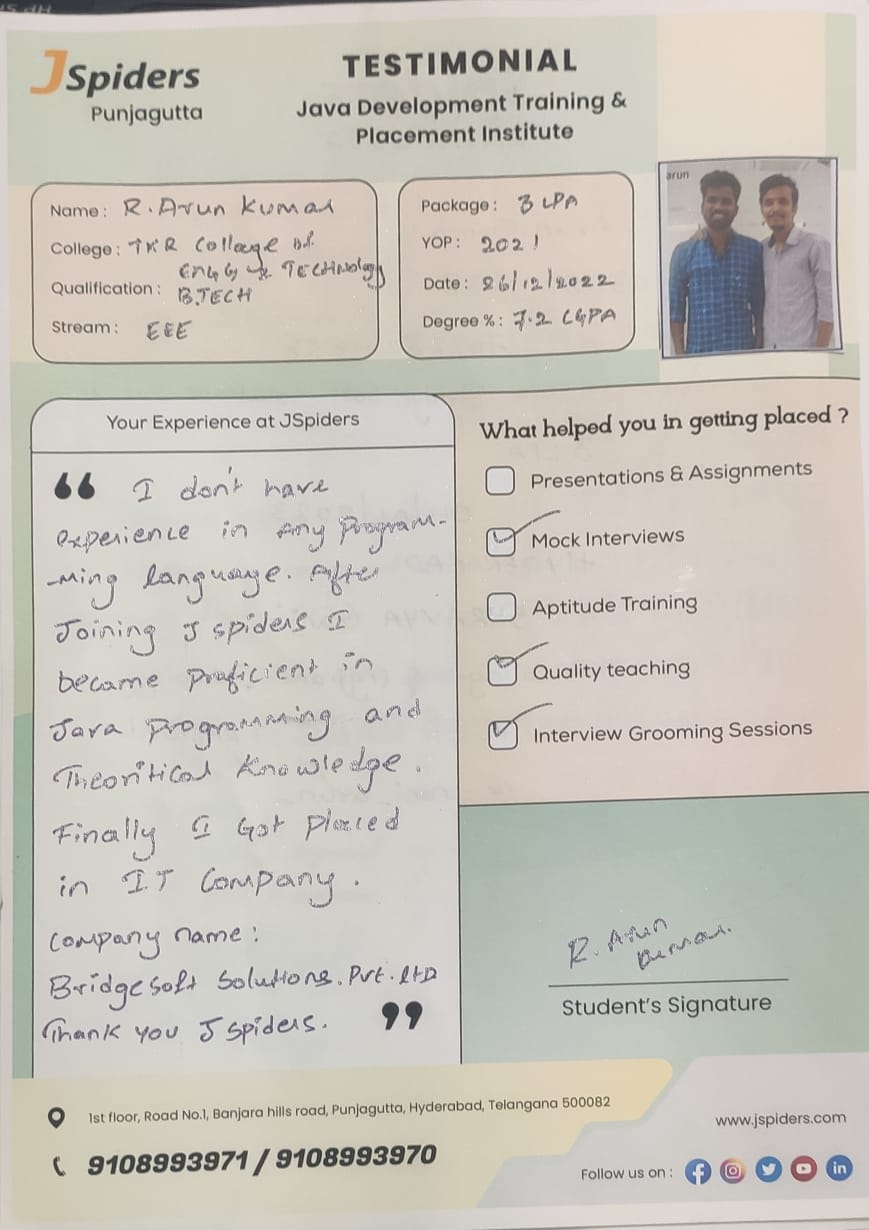 JSpiders
Punjagutta
TESTIMONIAL
Java Development Training &
Placement Institute
Name: R. Arun Kumar
College: TKR College of
Engg & TECHNology
Qualification: B.TECH
Stream: EEE
Package: 3 LPA
YOP: 2021
Date: 26/12/2022
Degree %: 7.2 CGPA
arun
Your Experience at JSpiders
“ I don't have
experience in Any Program-
-ming language. After
Joining J spiders I
became Proficient in
Java Programming and
Theoritical Knowledge.
Finally I Got Placed
in IT Company.
Company name:
Bridge Soft Solutions. Pvt. LtD
Thank you J spiders. ”
What helped you in getting placed ?
Presentations & Assignments
Mock Interviews
Aptitude Training
Quality teaching
Interview Grooming Sessions
R. Arun
Kumar.
Student's Signature
1st floor, Road No.1, Banjara hills road, Punjagutta, Hyderabad, Telangana 500082
9108993971 / 9108993970
www.jspiders.com
Follow us on :